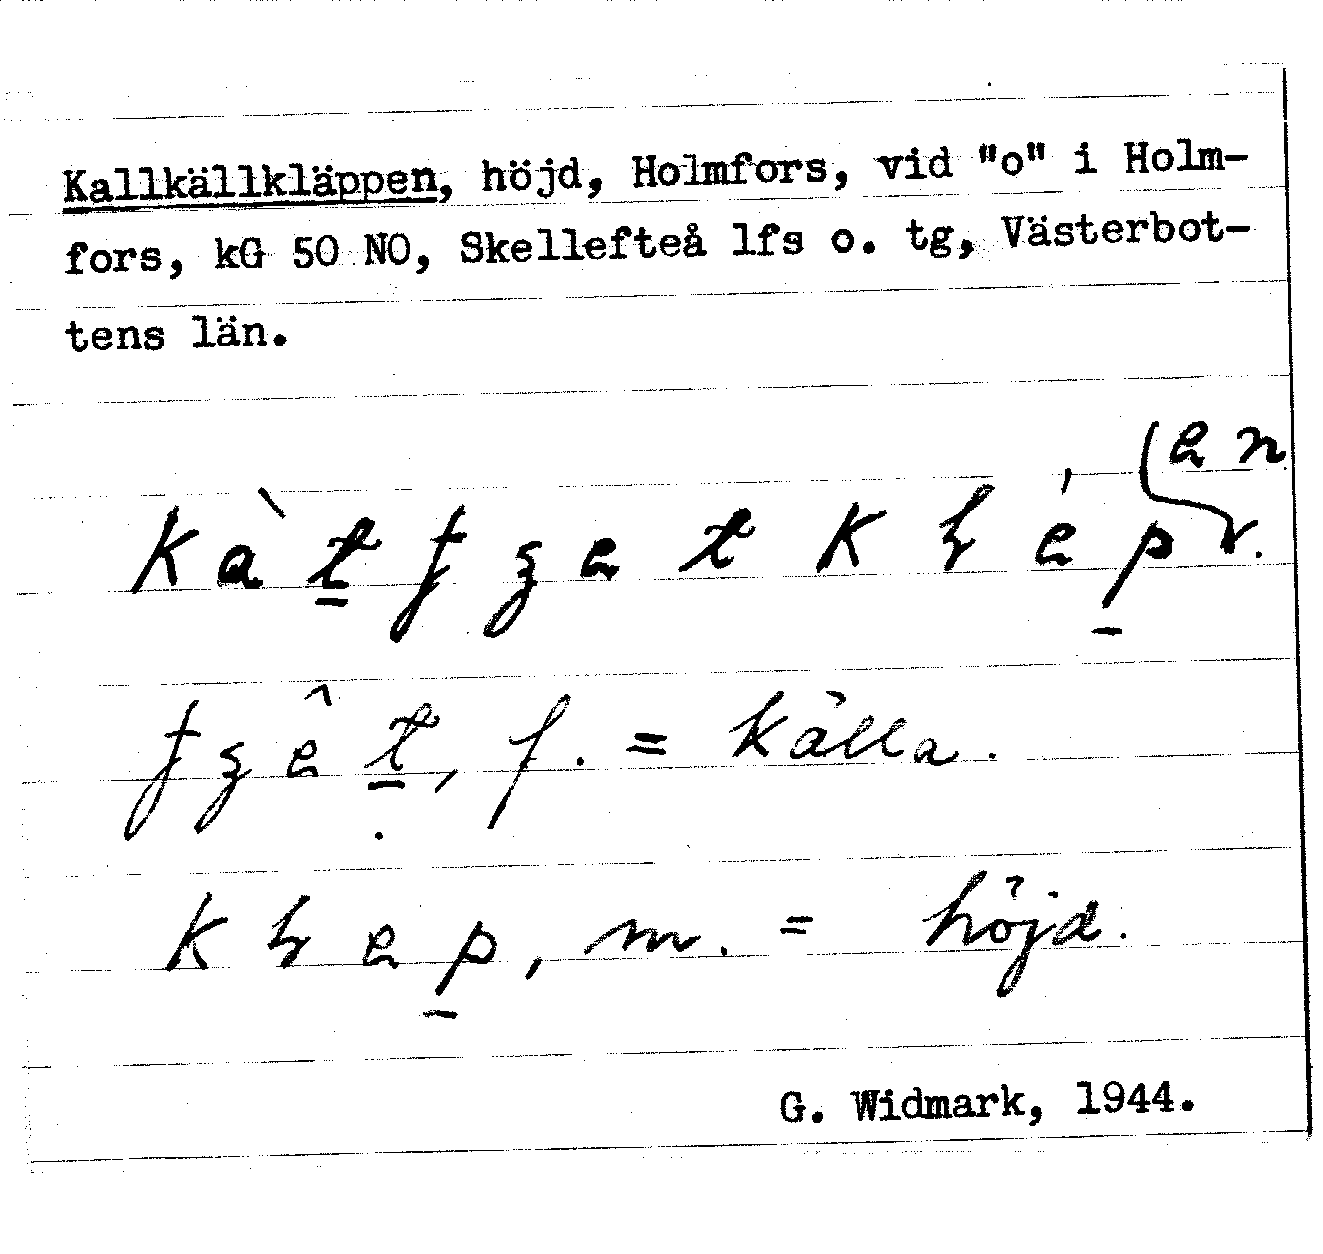 Kallkällkläppen, höjd, Holmfors, vid "o" i Holm-
fors, kG 50 NO, Skellefteå lfs o. tg, Västerbot-
tens län.
f. = källa.
m. = höjd.
G. Widmark, 1944.